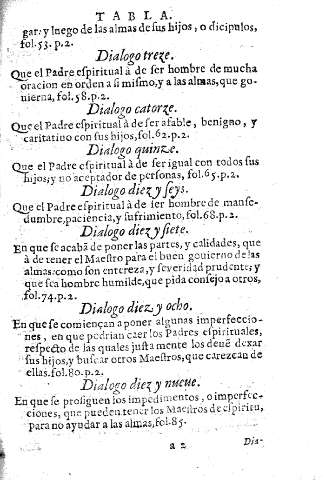 TABLA.
gar: y luego de las almas de sus hijos, o dicipulos,
fol. 53. p. 2.
Dialogo treze.
Que el Padre espiritual à de ser hombre de mucha
oracion en orden a si mismo, y a las almas, que go-
uierna, fol. 58. p. 2.
Dialogo catorze.
Que el Padre espiritual à de ser afable, benigno, y
caritatiuo con sus hijos, fol. 62. p. 2.
Dialogo quinze.
Que el Padre espiritual à de ser igual con todos sus
hijos; y no aceptador de personas, fol. 65. p. 2.
Dialogo diez y seys.
Que el Padre espiritual à de ser hombre de manse-
dumbre, paciencia, y sufrimiento, fol. 68. p. 2.
Dialogo diez y siete.
En que se acabā de poner las partes, y calidades, que
à de tener el Maestro para el buen gouierno de las
almas: como son entereza, y seueridad prudente; y
que sea hombre humilde, que pida consejo a otros,
fol. 74. p. 2.
Dialogo diez y ocho.
En que se comiençan a poner algunas imperfeccio-
nes, en que podrian caer los Padres espirituales,
respecto de las quales justamente los deuē dexar
sus hijos, y buscar otros Maestros, que carezcan de
ellas. fol. 80. p. 2.
Dialogo diez y nueue.
En que se prosiguen los impedimentos, o imperfec-
ciones, que pueden tener los Maestros de espiritu,
para no ayudar a las almas, fol. 85.
a 2 Dia-